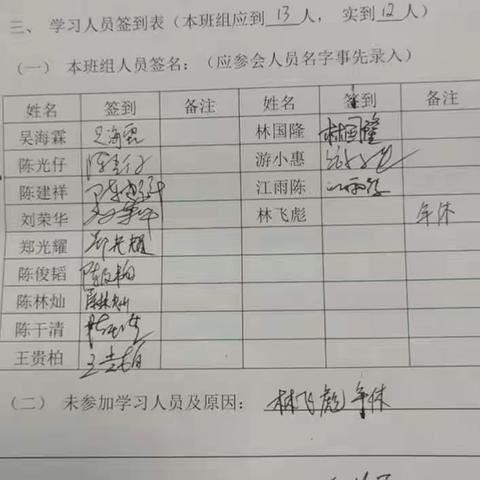 三、学习人员签到表（本班组应到 13 人， 实到 12 人）
（一） 本班组人员签名：（应参会人员名字事先录入）
姓名 签到 备注 姓名 签到 备注
吴海霖 吴海霖 林国隆 林国隆
陈光仔 陈光仔 游小惠 游小惠
陈建祥 陈建祥 江雨陈 江雨陈
刘荣华 刘荣华 林飞彪 年休
郑光耀 郑光耀
陈俊韬 陈俊韬
陈林灿 陈林灿
陈干清 陈干清
王贵柏 王贵柏
（二） 未参加学习人员及原因： 林飞彪 年休